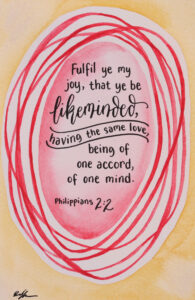 Fulfil ye my
joy, that ye be
likeminded,
having the same love,
being of
one accord,
of one mind.
Philippians 2:2